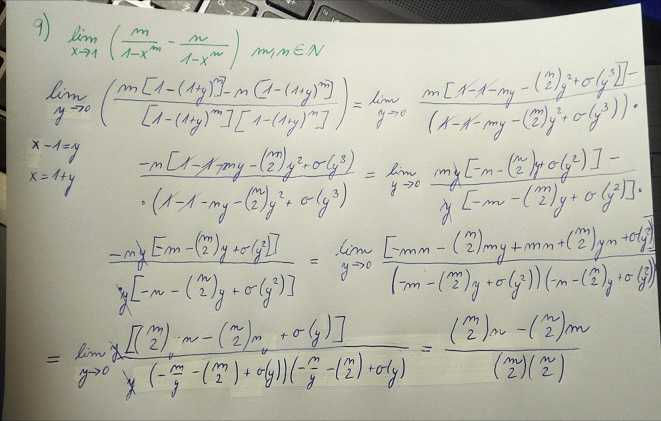 9) lim x→1 (m/(1-x^m) - n/(1-x^n)) m,n∈N
lim y→0 (m[1-(1+y)^n]-n[1-(1+y)^m] / [1-(1+y)^m][1-(1+y)^n]) = lim y→0 m[1-1-ny-(n 2)y²+σ(y³)]- / (1-1-my-(m 2)y²+σ(y³))·
x-1=y
x=1+y
-n[1-1-my-(m 2)y²+σ(y³) / ·(1-1-ny-(n 2)y²+σ(y³) = lim y→0 my[-n-(n 2)y+σ(y²)]- / y[-m-(m 2)y+σ(y²)]·
-ny[-m-(m 2)y+σ(y²)] / y[-n-(n 2)y+σ(y²)] = lim y→0 [-mn-(n 2)my+mn+(m 2)yn+σ(y²)] / (-m-(m 2)y+σ(y²))(-n-(n 2)y+σ(y²))
= lim y→0 y[(m 2)·n-(n 2)m+σ(y)] / y(-m/y-(m 2)+σ(y))(-n/y-(n 2)+σ(y) = (m 2)n-(n 2)m / (m 2)(n 2)